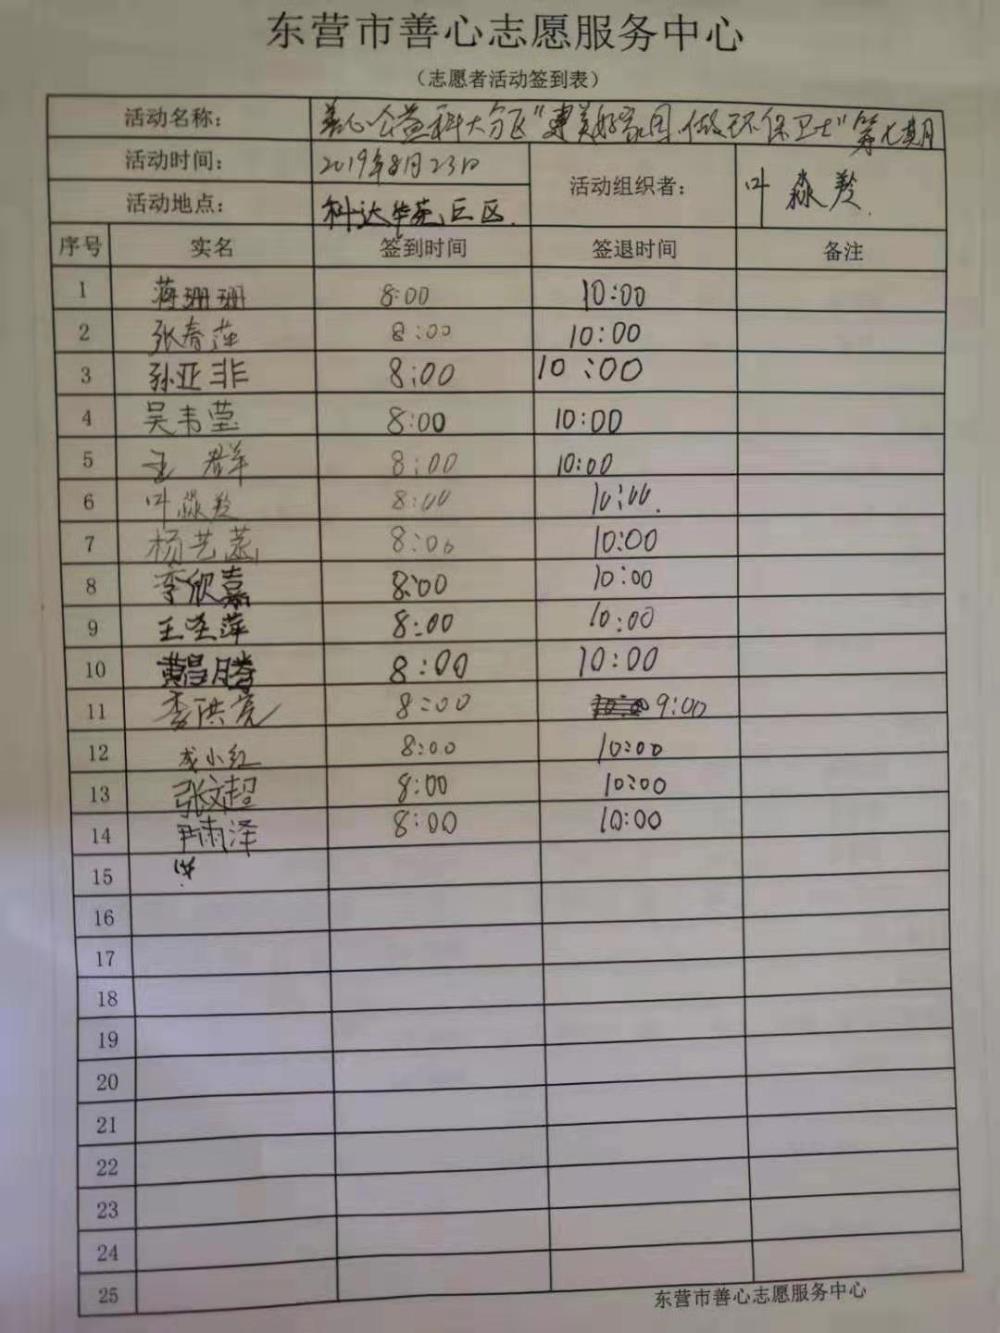 东营市善心志愿服务中心
（志愿者活动签到表）
活动名称： 善心公益科大分区“建美好家园,做环保卫士”第七期
活动时间： 2019年8月23日 活动组织者： 叶淼羚
活动地点： 科达华苑 区
序号 实名 签到时间 签退时间 备注
1 蒋珊珊 8:00 10:00
2 张春萍 8:00 10:00
3 孙亚非 8:00 10:00
4 吴韦莹 8:00 10:00
5 王群 8:00 10:00
6 叶淼羚 8:00 10:00.
7 杨艺 8:00 10:00
8 李欣嘉 8:00 10:00
9 王圣萍 8:00 10:00
10 黄昌腾 8:00 10:00
11 李洪亮 8:00 9:00
12 成小红 8:00 10:00
13 张文超 8:00 10:00
14 尹雨泽 8:00 10:00
15
16
17
18
19
20
21
22
23
24
25
东营市善心志愿服务中心